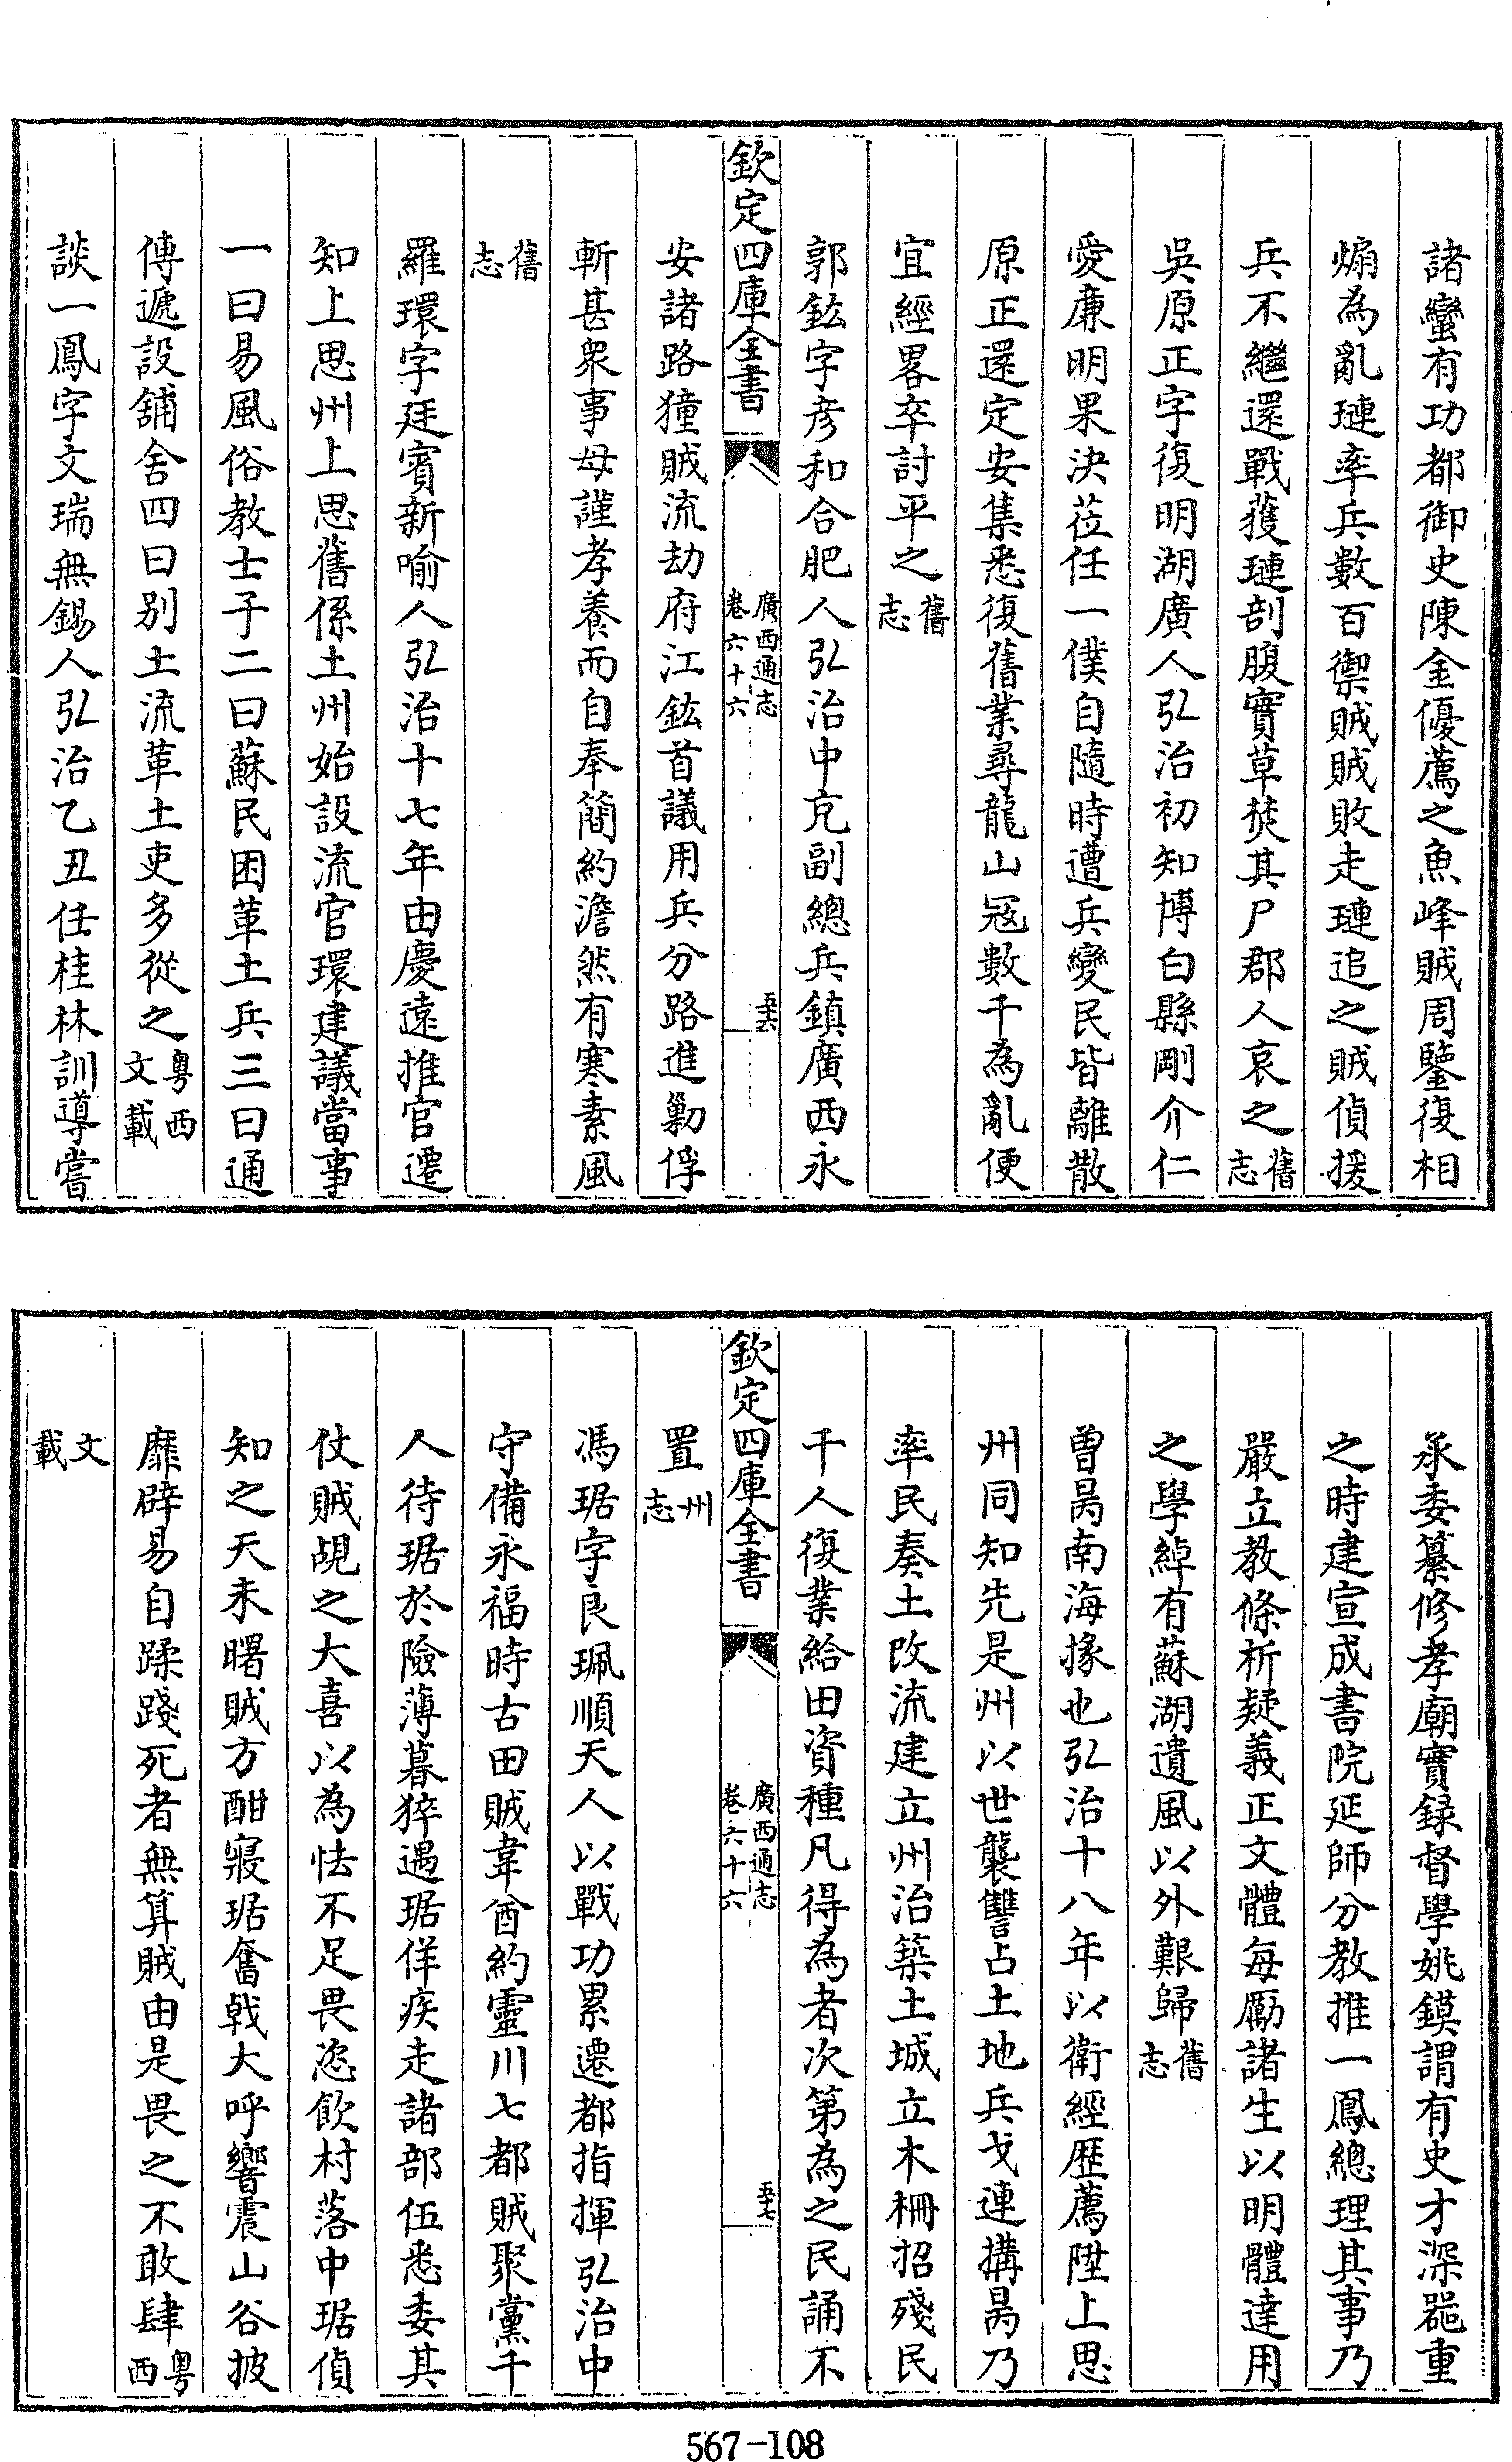 諸蠻有功都御史陳金優薦之魚峰賊周鑒復相
煽為亂璉率兵數百禦賊賊敗走璉追之賊偵援
兵不繼還戰獲璉剖腹實草焚其尸郡人哀之舊志
吳原正字復明湖廣人弘治初知博白縣剛介仁
愛廉明果決莅任一僕自隨時遭兵變民皆離散
原正還定安集悉復舊業尋龍山冦數千為亂便
宜經畧卒討平之舊志
郭鈜字彦和合肥人弘治中充副總兵鎮廣西永
欽定四庫全書 廣西通志卷六十六 五十六
安諸路獞賊流劫府江鈜首議用兵分路進勦俘
斬甚衆事母謹孝養而自奉簡約澹然有寒素風
舊志
羅環字廷賓新喻人弘治十七年由慶遠推官遷
知上思州上思舊係土州始設流官環建議當事
一曰易風俗教士子二曰蘇民困革土兵三曰通
傳遞設舖舍四曰别土流革土吏多從之粤西文載
談一鳳字文瑞無錫人弘治乙丑任桂林訓導嘗
承委纂修孝廟實録督學姚鏌謂有史才深器重
之時建宣成書院延師分教推一鳳總理其事乃
嚴立教條析疑義正文體每勵諸生以明體達用
之學綽有蘇湖遺風以外艱歸舊志
曽昺南海掾也弘治十八年以衛經歴薦陞上思
州同知先是州以世襲讐占土地兵戈連搆昺乃
率民奏土改流建立州治築土城立木柵招殘民
千人復業給田資種凡得為者次第為之民誦不
欽定四庫全書 廣西通志卷六十六 五十七
置州志
馮琚字良珮順天人以戰功累遷都指揮弘治中
守備永福時古田賊韋酋約靈川七都賊聚黨千
人待琚於險薄暮猝遇琚佯疾走諸部伍悉委其
仗賊覘之大喜以為怯不足畏恣飲村落中琚偵
知之天未曙賊方酣寢琚奮戟大呼響震山谷披
靡辟易自蹂踐死者無算賊由是畏之不敢肆粤西
文載
567-108